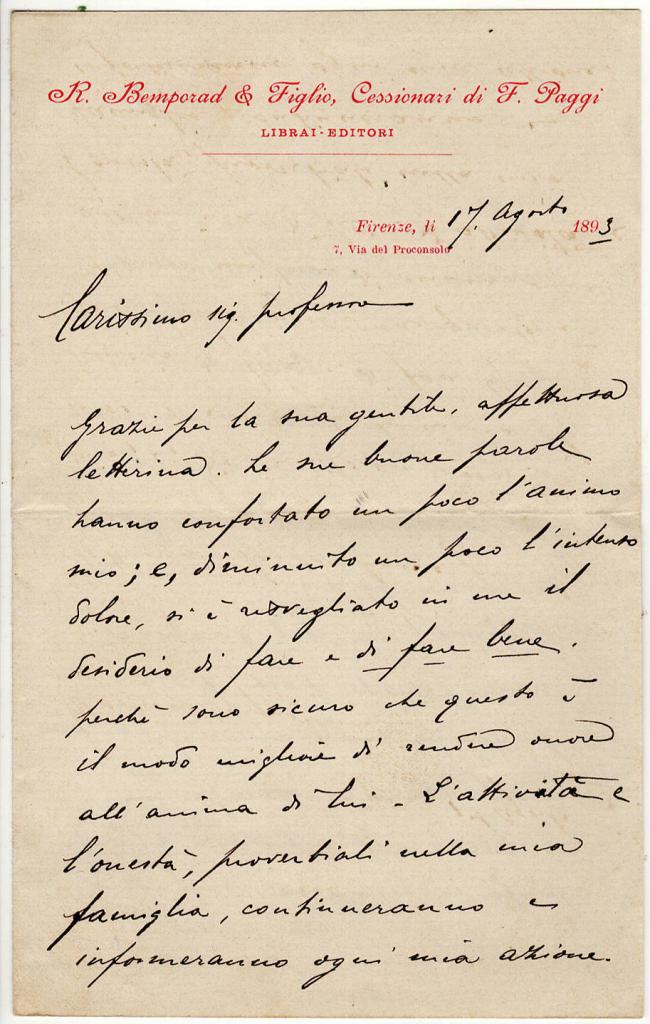 R. Bemporad & Figlio, Cessionari di F. Paggi
LIBRAI-EDITORI
Firenze, li 17. Agosto 1893
7, Via del Proconsolo
Carissimo sig. professore
Grazie per la sua gentile, affettuosa
letterina. Le sue buone parole
hanno confortato un poco l'animo
mio; e, diminuito un poco l'intenso
dolore, si è risvegliato in me il
desiderio di fare e di fare bene,
perchè sono sicuro che questo è
il modo migliore di rendere onore
all'anima di Lui - L'attività e
l'onestà, proverbiali nella mia
famiglia, continueranno e
informeranno ogni mia azione.